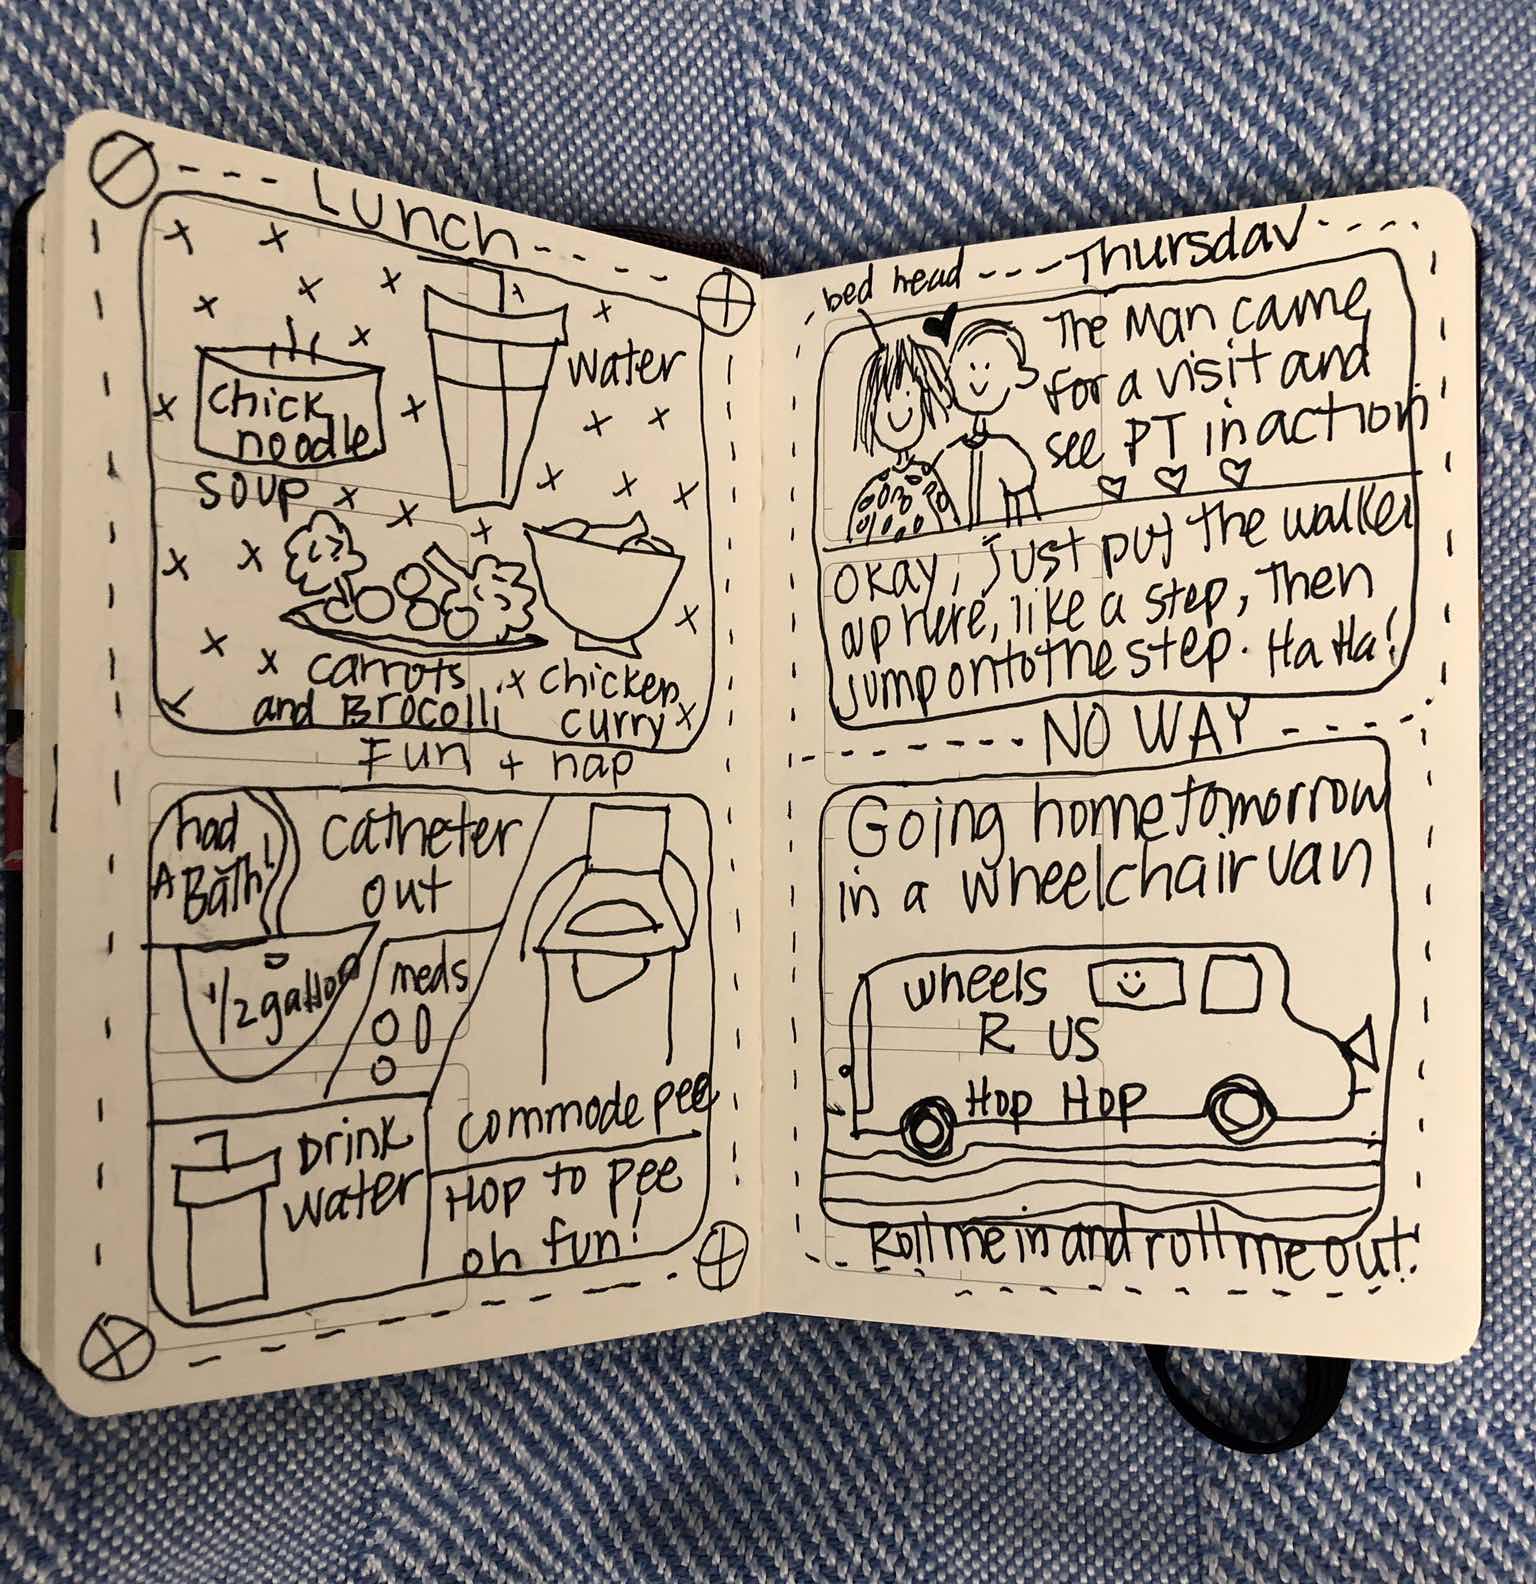 Lunch
water
chick
noodle
soup
carrots
and Brocolli
chicken
curry
Fun + nap
had
A Bath!
catheter
out
1/2 gallon
meds
commode pee
Drink
water
Hop to pee
oh fun!
Thursday
bed head
The Man came
for a visit and
see PT in action
okay, just put the walker
up here, like a step, then
jump onto the step. Ha Ha!
NO WAY
Going home tomorrow
in a wheelchair van
wheels
R US
Hop HOP
Roll me in and roll me out!